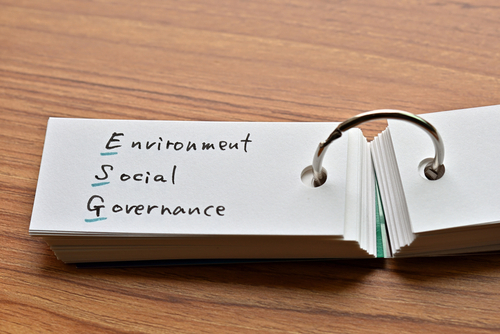 Environment
Social
Governance